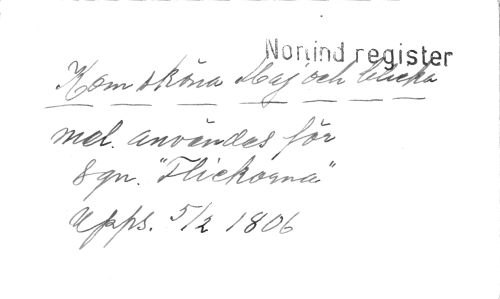 Norlind register
Kom sköna Maj och blicka
mel. användes för
sgn. "Flickorna"
Upps. 5/2 1806